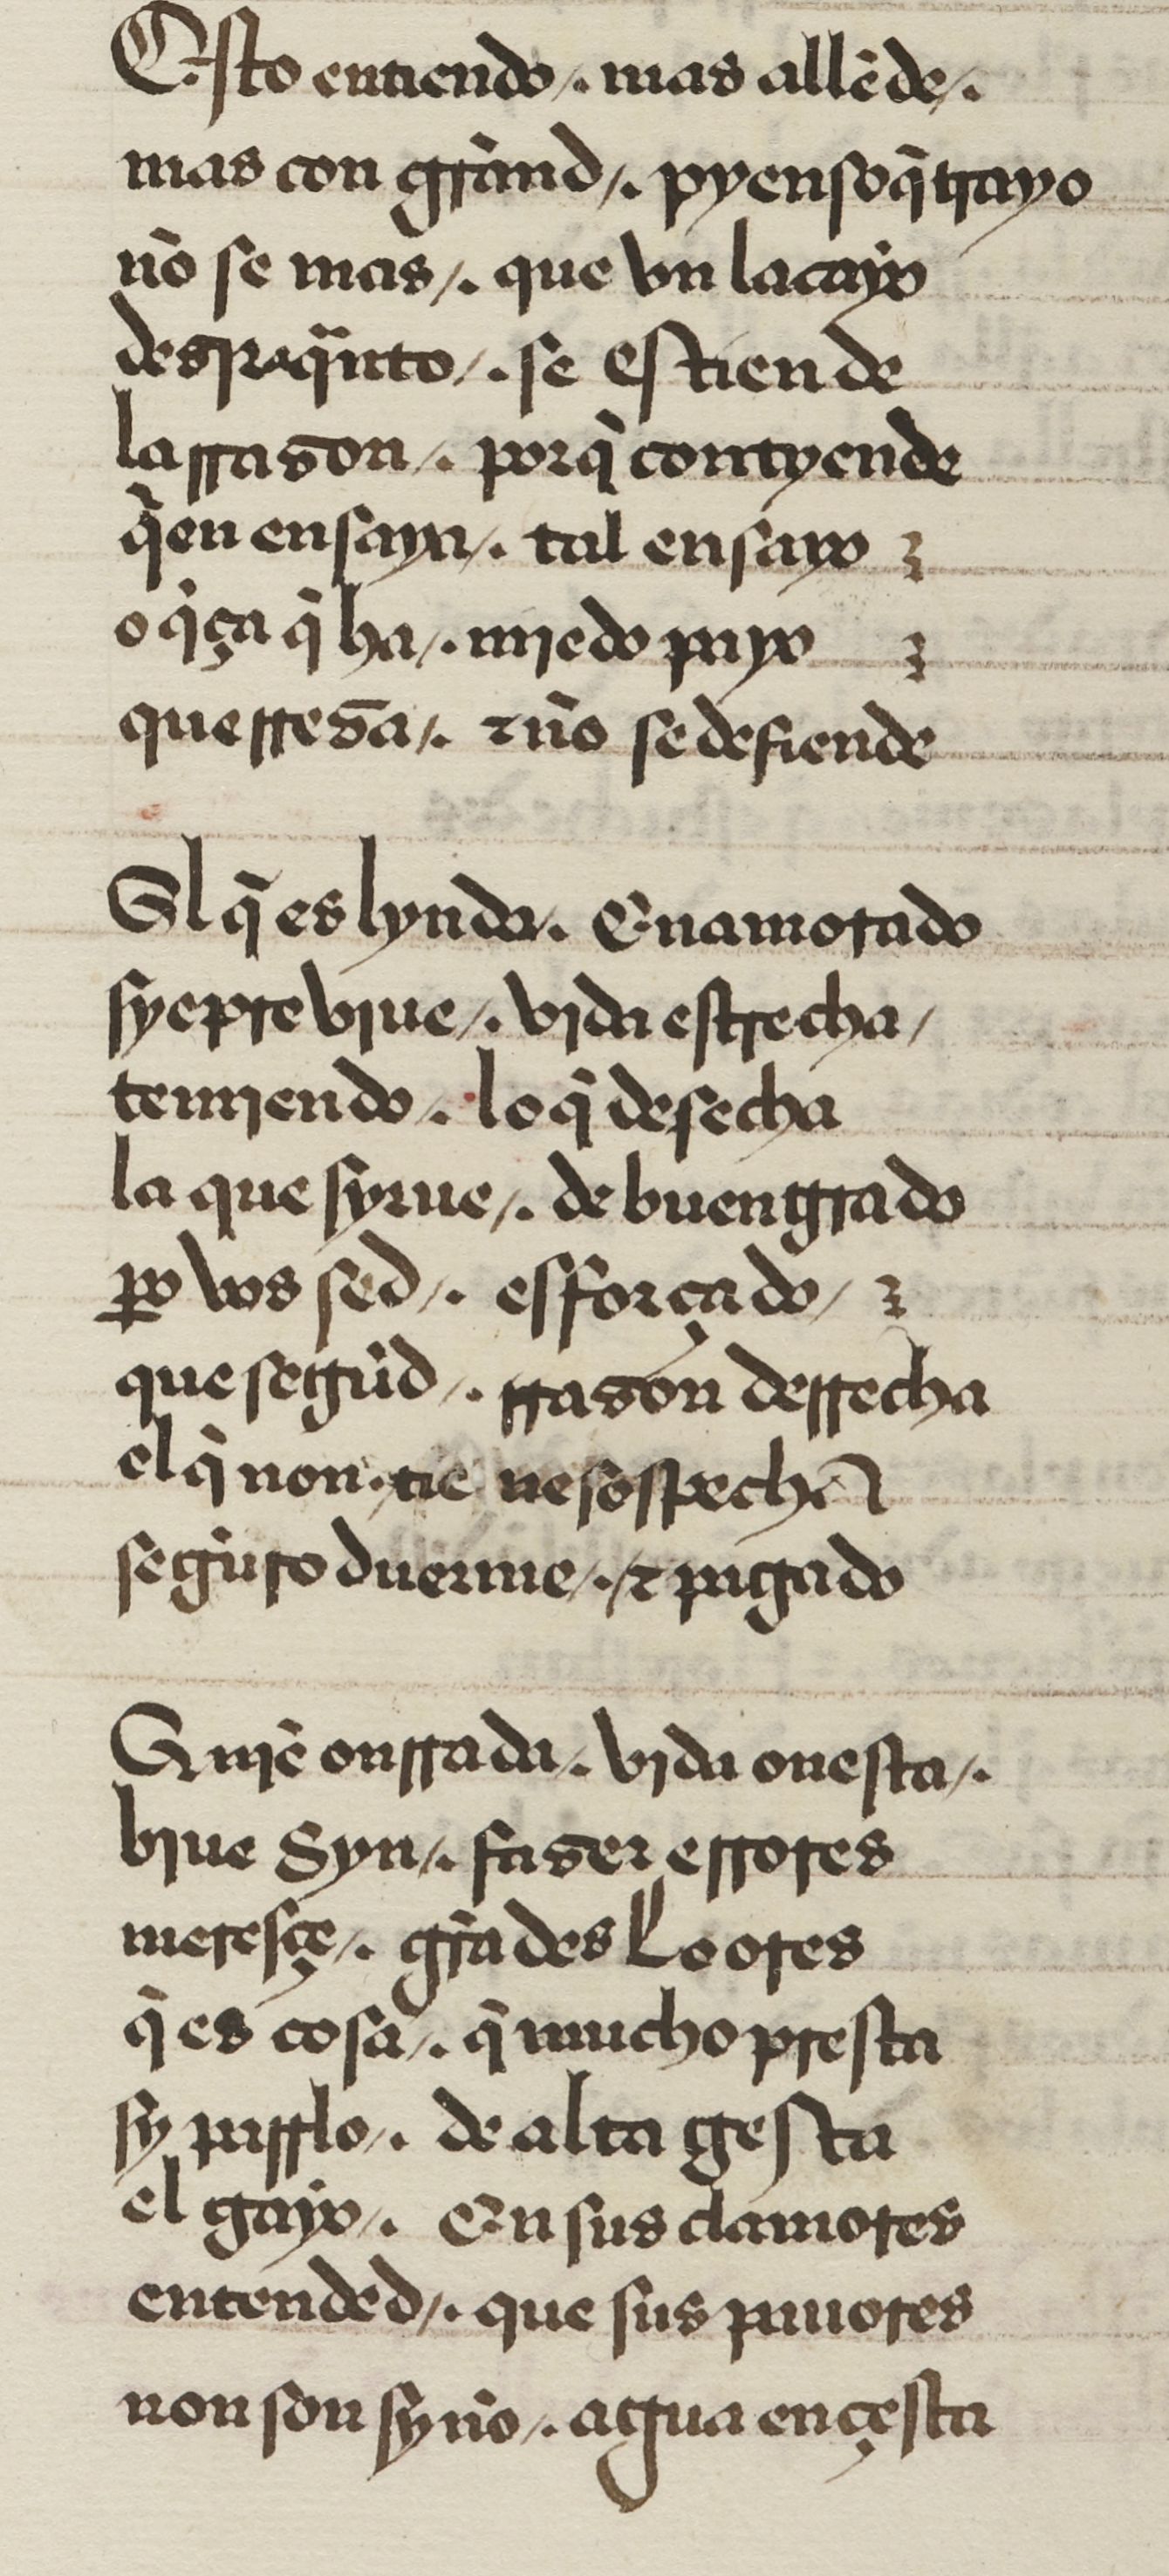 Esto entiendo /. mas allẽde /.
mas con grãnd /. pyenso q̃ trayo
nõ se mas /. que vn lacayo
desp̃ q̃nto /. se estiende
la rrason /. porq̃ contyende
q̃en ensaya /. tal ensayo
o q̃ça q̃ ha /. miedo payo
que rresã /. ⁊ nõ se defiende
El q̃ es lyndo /. Enamorado
syẽpre viue /. vida estrecha /
temiendo /. lo q̃ desecha
la que syrue /. de buen grado
ꝑo vos sed /. esforçado /
que segũd /. rrason derrecha
el q̃ non tie ne sospecha
seguro duerme /. ⁊ pagado
Quiẽ onrrada /. vida onesta /.
biue Syn /. faser errores
meresçe /. grãdes Loores
q̃ es cosa /. q̃ mucho presta
sy pafflo /. de alta gesta
el gayo /. En sus clamores
entended /. que sus pauores
non son synõ /. agua en çesta